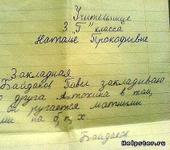 Учительнице
3 "Б" класса
Наталье Прокофьевне
Закладная
Байдаков Павел закладываю
друга Антохина в том,
ругается матными
на б, п, х
Байдаков
Hotpster.ru